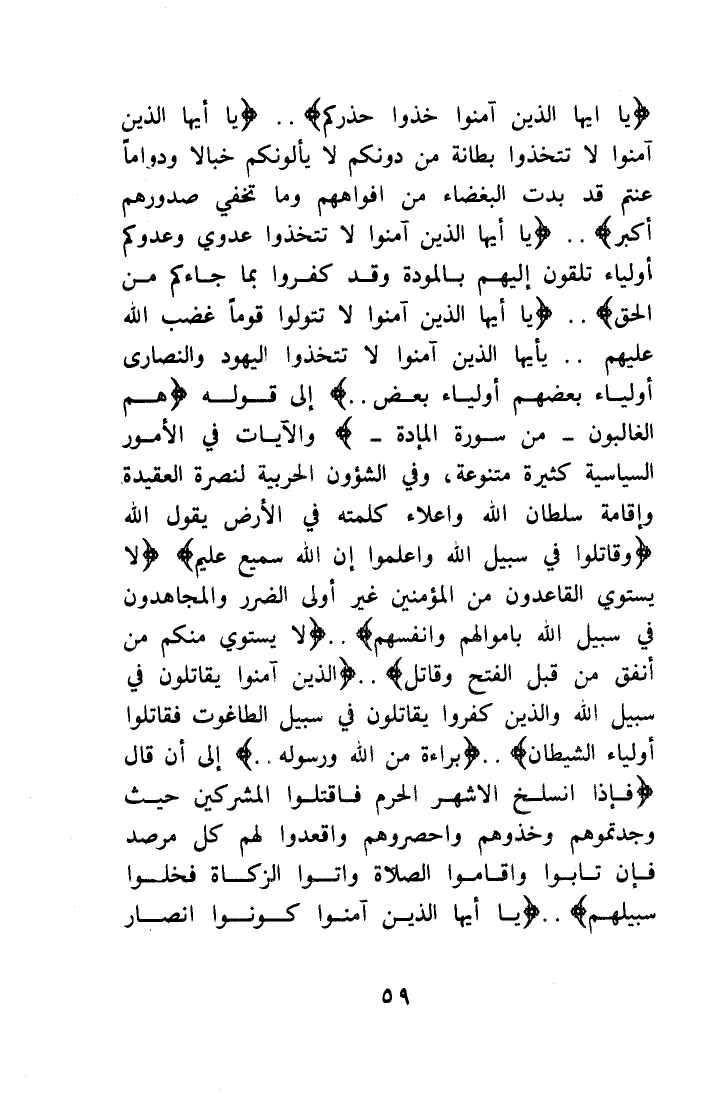 ﴿يا ايها الذين آمنوا خذوا حذركم﴾ . . ﴿يا أيها الذين
آمنوا لا تتخذوا بطانة من دونكم لا يألونكم خبالا ودواماً
عنتم قد بدت البغضاء من افواههم وما تخفي صدورهم
أكبر﴾ . . ﴿يا أيها الذين آمنوا لا تتخذوا عدوي وعدوكم
أولياء تلقون إليهم بالمودة وقد كفروا بما جاءكم من
الحق﴾ . . ﴿يا أيها الذين آمنوا لا تتولوا قوماً غضب الله
عليهم . . يأيها الذين آمنوا لا تتخذوا اليهود والنصارى
أولياء بعضهم أولياء بعض . .﴾ إلى قوله ﴿هم
الغالبون ـ من سورة المادة ـ ﴾ والآيات في الأمور
السياسية كثيرة متنوعة، وفي الشؤون الحربية لنصرة العقيدة
وإقامة سلطان الله واعلاء كلمته في الأرض يقول الله
﴿وقاتلوا في سبيل الله واعلموا إن الله سميع عليم﴾ ﴿لا
يستوي القاعدون من المؤمنين غير أولى الضرر والمجاهدون
في سبيل الله باموالهم وانفسهم﴾ . .﴿لا يستوي منكم من
أنفق من قبل الفتح وقاتل﴾ . .﴿الذين آمنوا يقاتلون في
سبيل الله والذين كفروا يقاتلون في سبيل الطاغوت فقاتلوا
أولياء الشيطان﴾ . .﴿براءة من الله ورسوله . .﴾ إلى أن قال
﴿فإذا انسلخ الاشهر الحرم فاقتلوا المشركين حيث
وجدتموهم وخذوهم واحصروهم واقعدوا لهم كل مرصد
فإن تابوا واقاموا الصلاة واتوا الزكاة فخلوا
سبيلهم﴾ . .﴿يا أيها الذين آمنوا كونوا انصار
٥٩